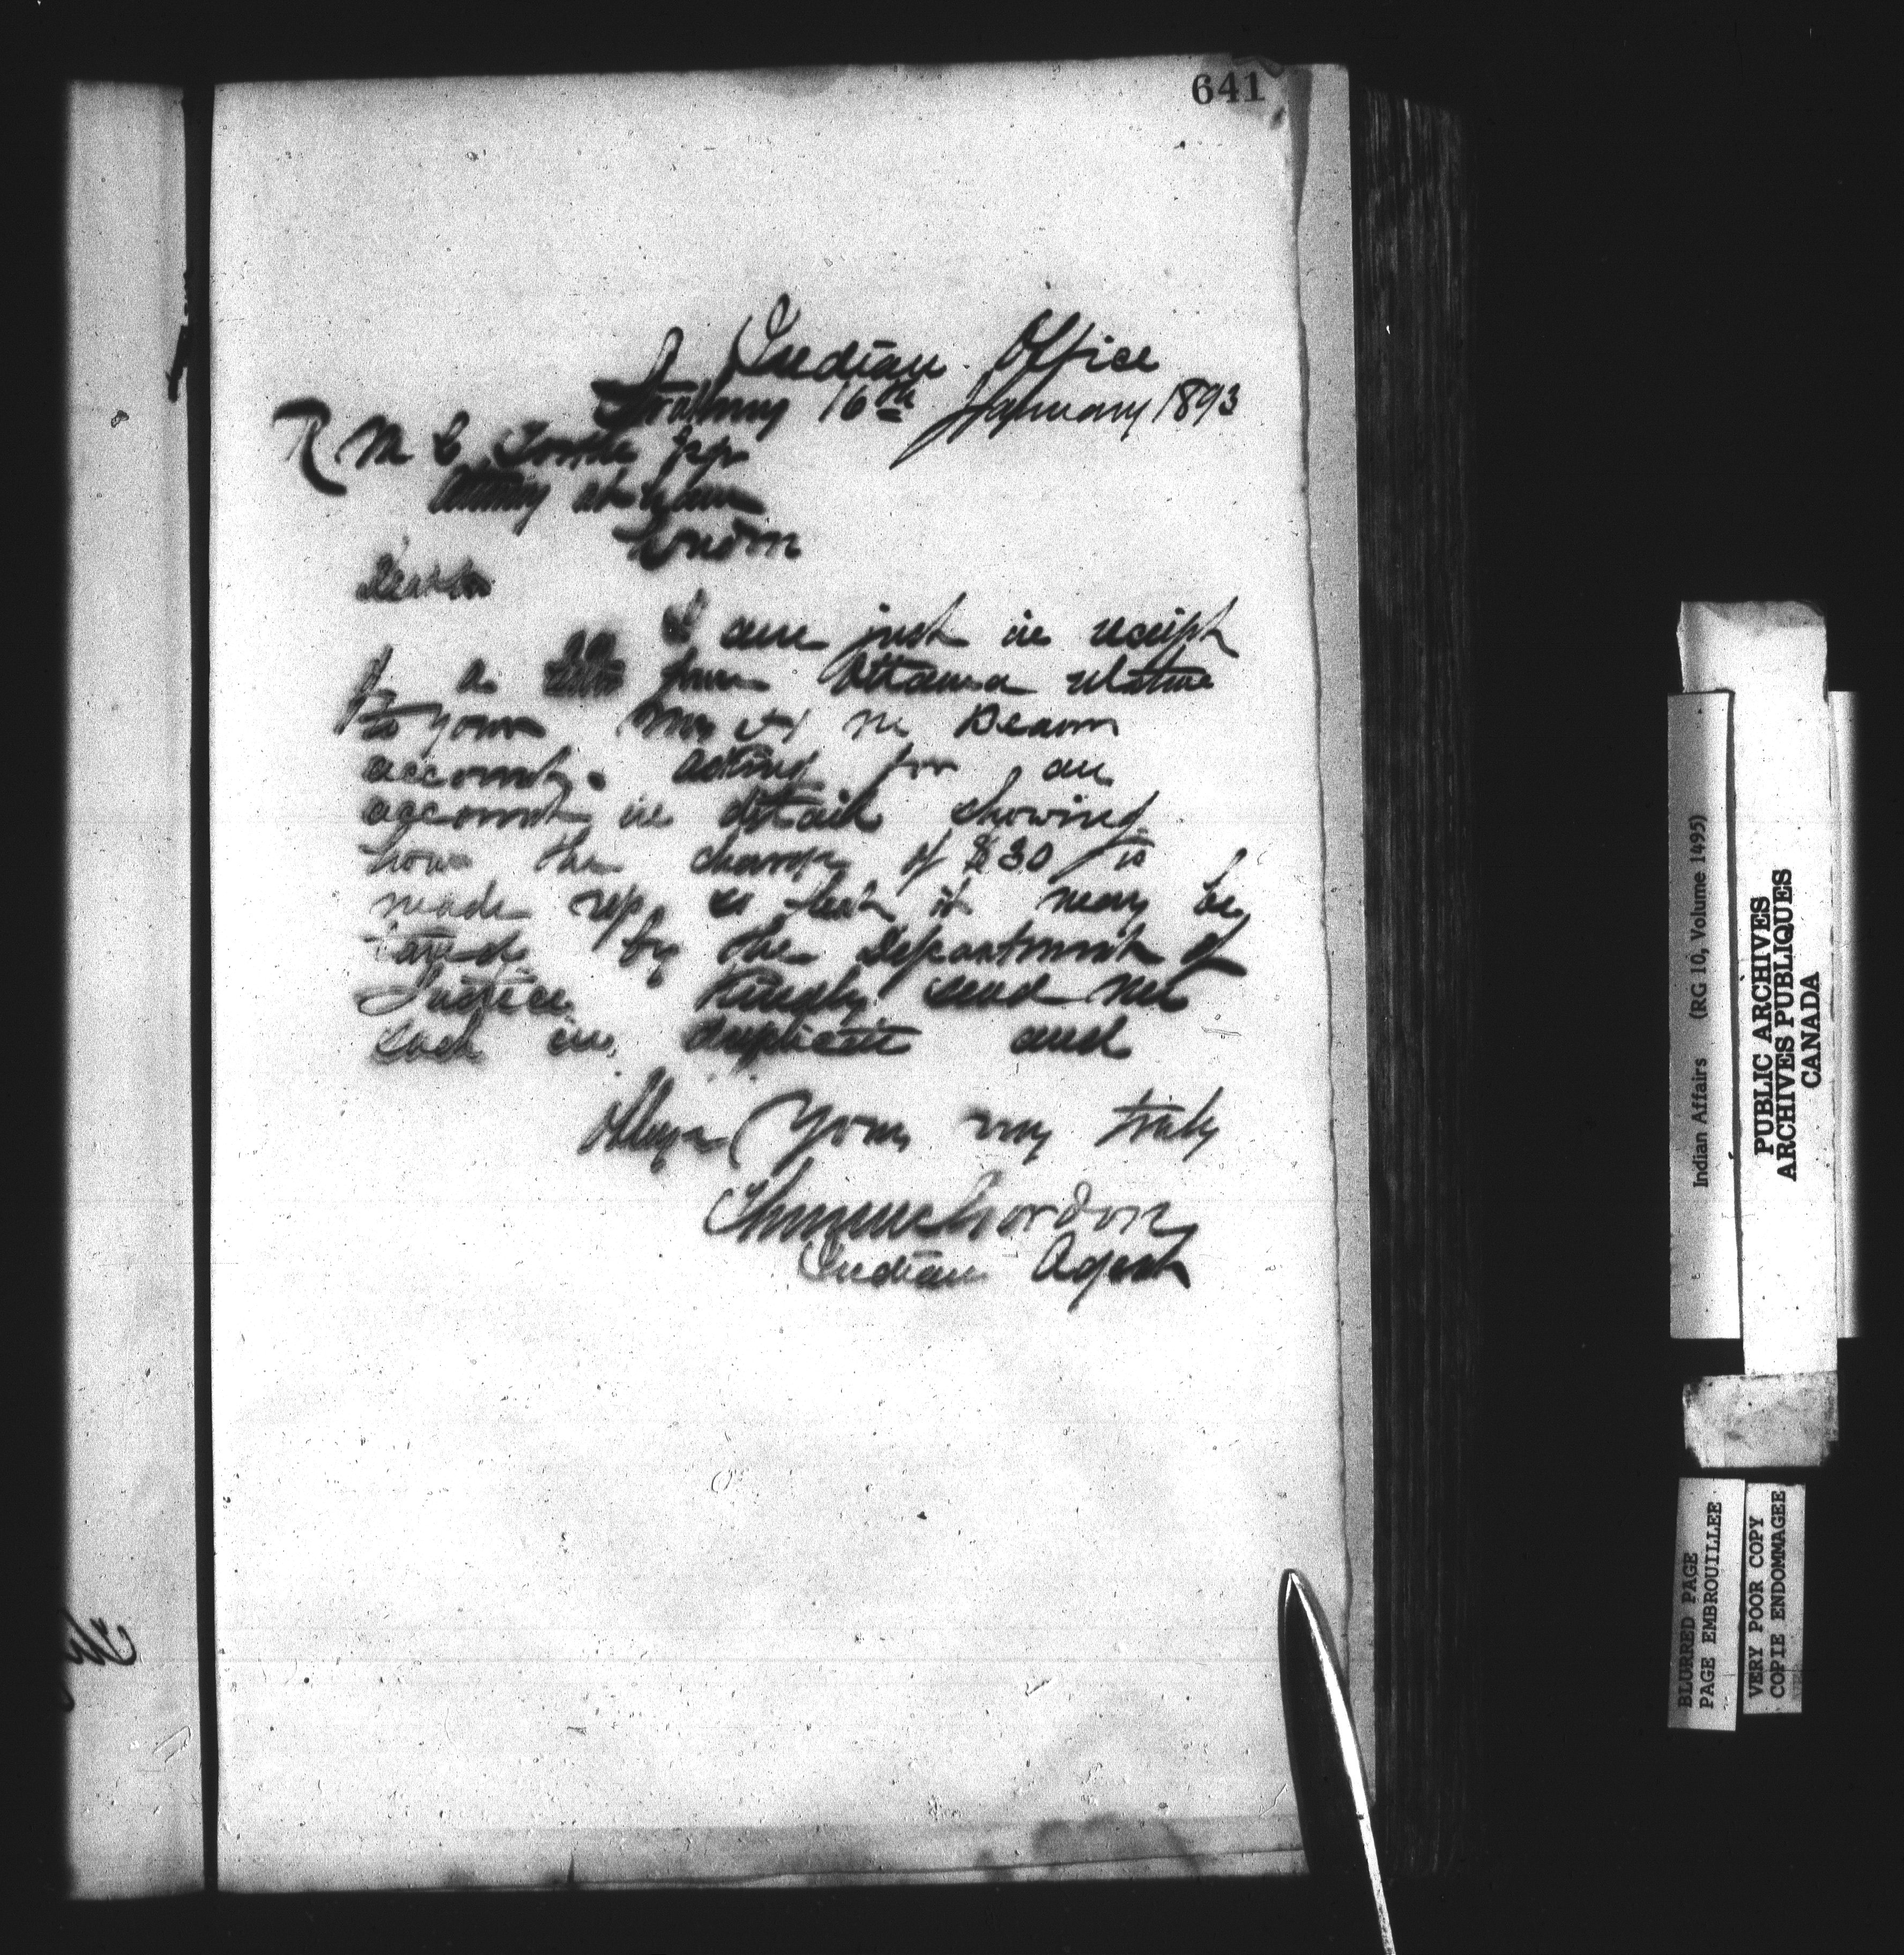 641
Indian Office
Strathroy 16th January 1893
R M C Toothe Esqr
Attorney at Law
London
Dear Sir
I am just in receipt
of a from Ottawa relative
to your
account. asking for an
account in detail showing
how the charge of $30 is
made up so that it may be
taxed by the Department of
Justice. Kindly send me
such in duplicate and
Oblige Yours very truly
Thomas Gordon
Indian Agent
Indian Affairs (RG 10, Volume 1495)
PUBLIC ARCHIVES
ARCHIVES PUBLIQUES
CANADA
BLURRED PAGE
PAGE EMBROUILLEE
VERY POOR COPY
COPIE ENDOMMAGEE